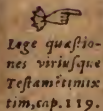 Lege quæſtio-
nes vtriuſque
Teſtamēti mix
tim, cap. 119.